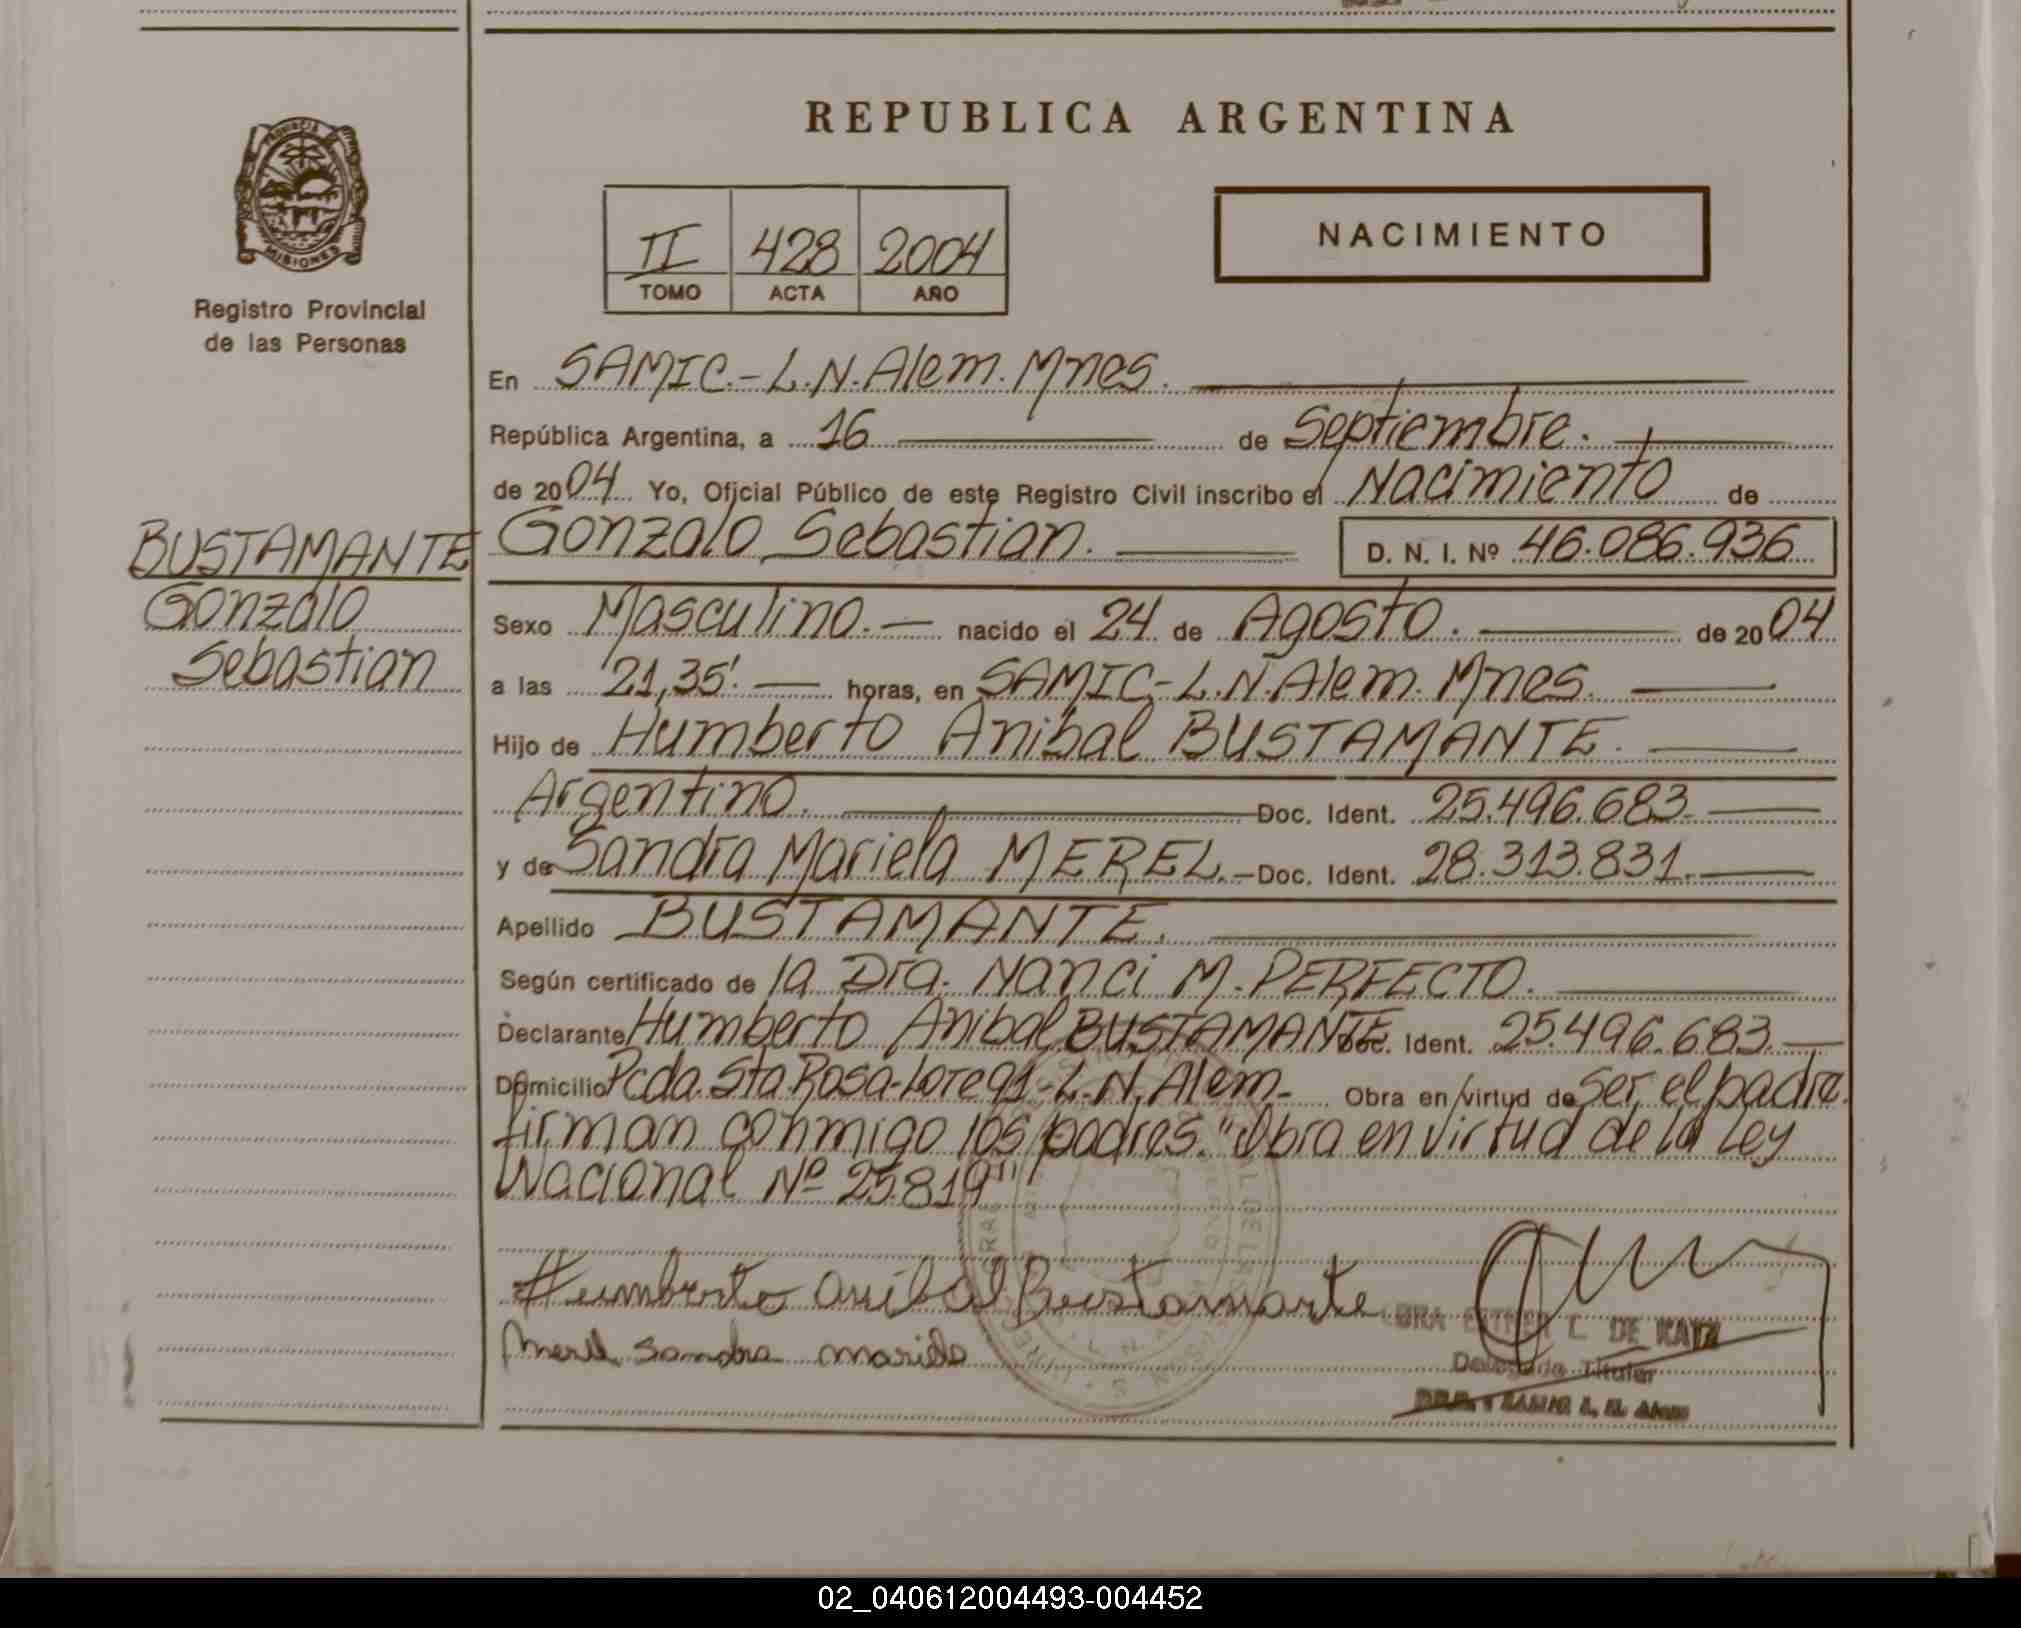 REPUBLICA ARGENTINA
PROVINCIA
MISIONES
Registro Provincial
de las Personas
II 428 2004
TOMO ACTA AÑO
NACIMIENTO
En SAMIC.-L.N.Alem.Mnes.
República Argentina, a 16 de Septiembre.
de 2004 Yo, Oficial Público de este Registro Civil inscribo el Nacimiento de
BUSTAMANTE
Gonzalo
Sebastian
Gonzalo Sebastian. D. N. I. Nº 46.086.936
Sexo Masculino.- nacido el 24 de Agosto. de 2004
a las 21,35'. horas, en SAMIC-L.N.Alem. Mnes.
Hijo de Humberto Anibal BUSTAMANTE.
Argentino. Doc. Ident. 25.496.683
y de Sandra Mariela MEREL.- Doc. Ident. 28.313.831.
Apellido BUSTAMANTE.
Según certificado de la Dra. Nanci M. PERFECTO.
Declarante Humberto Anibal BUSTAMANTE Doc. Ident. 25.496.683.
Domicilio Pcda. Sta Rosa-Lore 91-L.N.Alem- Obra en virtud de ser el padre.
firman conmigo los padres. "Obra en virtud de la Ley
Nacional Nº 25.819"
Humberto Anibal Bustamante
Merel Sandra Mariela
DE KATZ
Delegada Titular
02_040612004493-004452